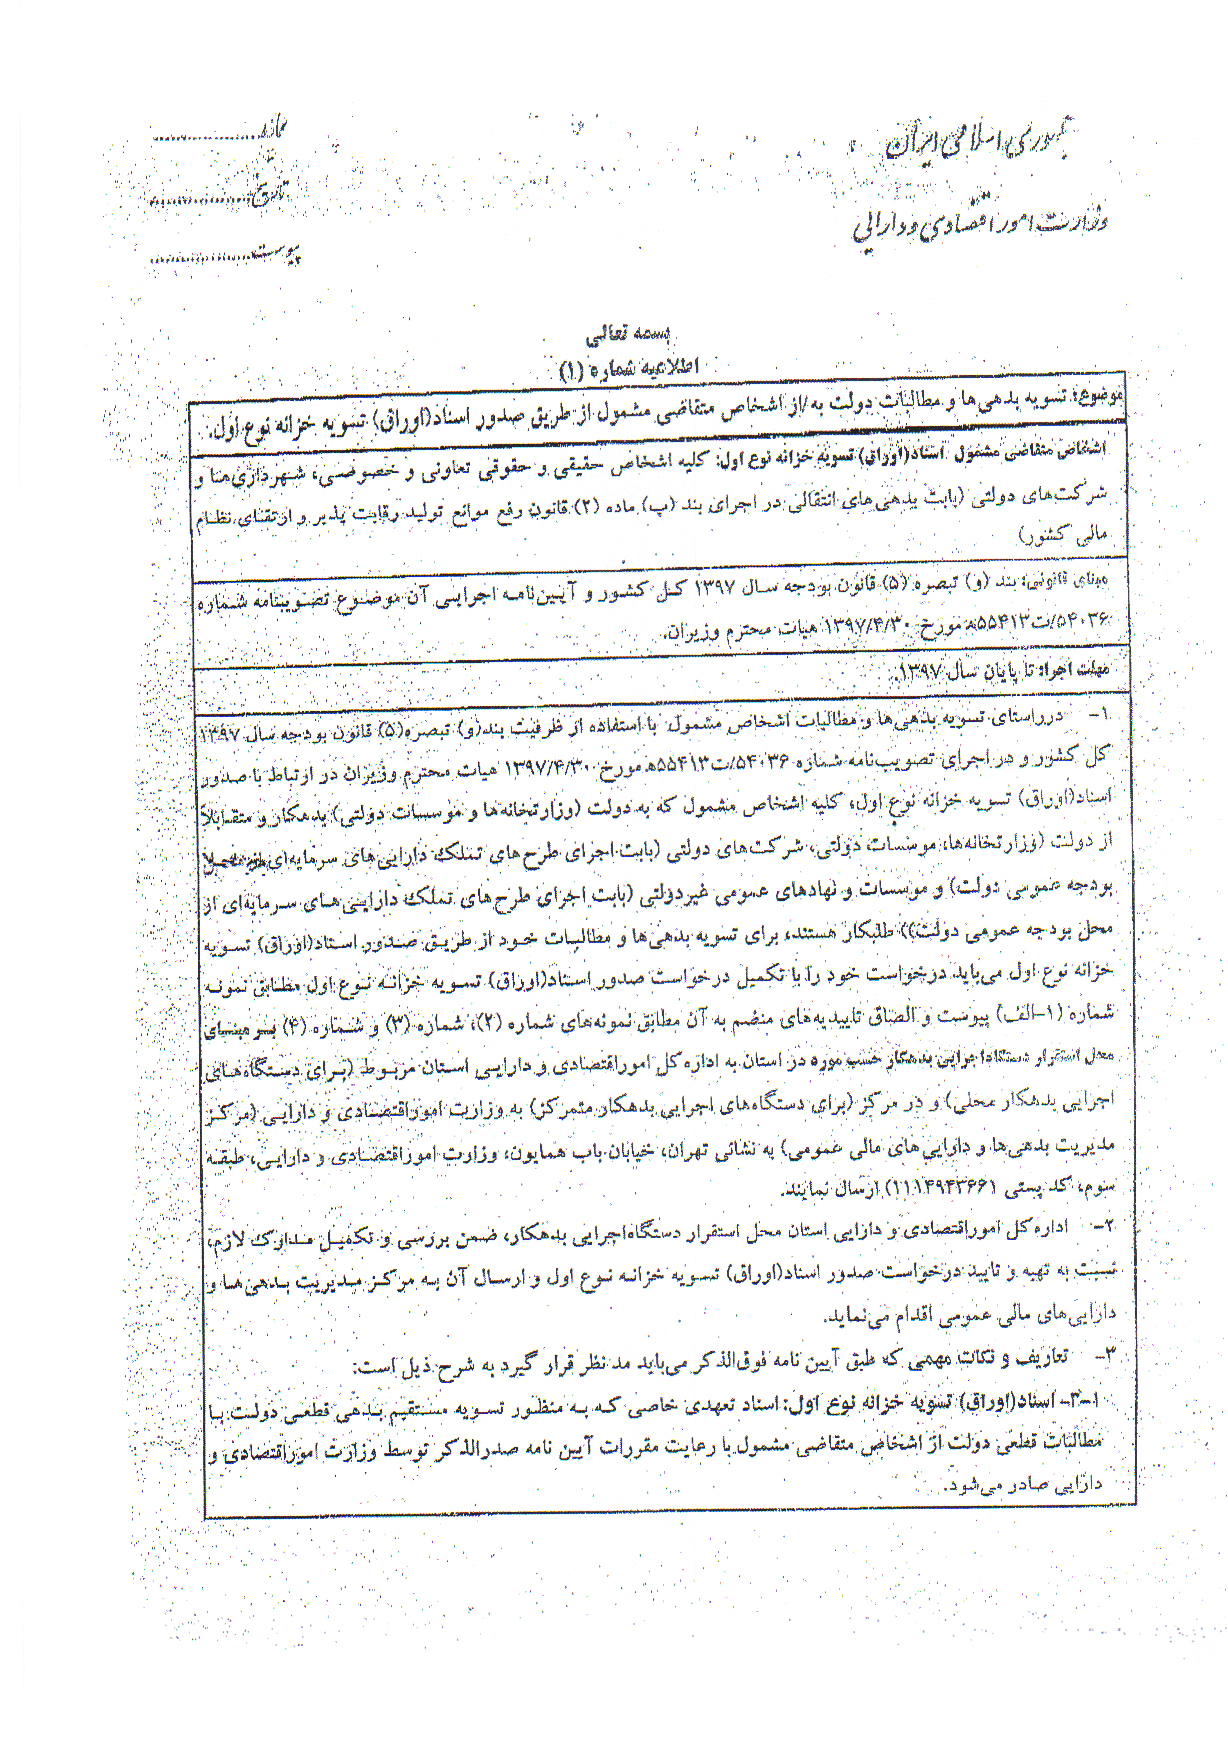 جمهوری اسلامی ایران
وزارت امور اقتصادی و دارایی
شماره
تاریخ
پیوست
بسمه تعالی
اطلاعیه شماره (۱)
موضوع: تسویه بدهی‌ها و مطالبات دولت به/از اشخاص متقاضی مشمول از طریق صدور اسناد(اوراق) تسویه خزانه نوع اول.
اشخاص متقاضی مشمول اسناد(اوراق) تسویه خزانه نوع اول: کلیه اشخاص حقیقی و حقوقی تعاونی و خصوصی، شهرداری‌ها و
شرکت‌های دولتی (بابت بدهی‌های انتقالی در اجرای بند (پ) ماده (۲) قانون رفع موانع تولید رقابت پذیر و ارتقای نظام
مالی کشور)
مبنای قانونی: بند (و) تبصره (۵) قانون بودجه سال ۱۳۹۷ کل کشور و آیین‌نامه اجرایی آن موضوع تصویبنامه شماره
۵۴۰۳۶/ت۵۵۴۱۳ه مورخ ۱۳۹۷/۴/۳۰ هیات محترم وزیران.
مهلت اجرا: تا پایان سال ۱۳۹۷.
۱- در راستای تسویه بدهی‌ها و مطالبات اشخاص مشمول با استفاده از ظرفیت بند(و) تبصره(۵) قانون بودجه سال ۱۳۹۷
کل کشور و در اجرای تصویب‌نامه شماره ۵۴۰۳۶/ت۵۵۴۱۳ه مورخ ۱۳۹۷/۴/۳۰ هیات محترم وزیران در ارتباط با صدور
اسناد(اوراق) تسویه خزانه نوع اول، کلیه اشخاص مشمول که به دولت (وزارتخانه‌ها و موسسات دولتی) بدهکار و متقابلاً
از دولت (وزارتخانه‌ها، موسسات دولتی، شرکت‌های دولتی (بابت اجرای طرح‌های تملک دارایی‌های سرمایه‌ای از محل
بودجه عمومی دولت) و موسسات و نهادهای عمومی غیردولتی (بابت اجرای طرح‌های تملک دارایی‌های سرمایه‌ای از
محل بودجه عمومی دولت)) طلبکار هستند، برای تسویه بدهی‌ها و مطالبات خود از طریق صدور اسناد(اوراق) تسویه
خزانه نوع اول می‌باید درخواست خود را با تکمیل درخواست صدور اسناد(اوراق) تسویه خزانه نوع اول مطابق نمونه
شماره (۱-الف) پیوست و الصاق تاییدیه‌های منضم به آن مطابق نمونه‌های شماره (۲)، شماره (۳) و شماره (۴) بر مبنای
محل استقرار دستگاه اجرایی بدهکار حسب مورد در استان به اداره کل امور اقتصادی و دارایی استان مربوط (برای دستگاه‌های
اجرایی بدهکار محلی) و در مرکز (برای دستگاه‌های اجرایی بدهکار متمرکز) به وزارت امور اقتصادی و دارایی (مرکز
مدیریت بدهی‌ها و دارایی‌های مالی عمومی) به نشانی تهران، خیابان باب همایون، وزارت امور اقتصادی و دارایی، طبقه
سوم، کد پستی ۱۱۱۴۹۴۳۶۶۱) ارسال نمایند.
۲- اداره کل امور اقتصادی و دارایی استان محل استقرار دستگاه اجرایی بدهکار، ضمن بررسی و تکمیل مدارک لازم،
نسبت به تهیه و تایید درخواست صدور اسناد(اوراق) تسویه خزانه نوع اول و ارسال آن به مرکز مدیریت بدهی‌ها و
دارایی‌های مالی عمومی اقدام می‌نماید.
۳- تعاریف و نکات مهمی که طبق آیین نامه فوق‌الذکر می‌باید مد نظر قرار گیرد به شرح ذیل است:
۳-۱- اسناد(اوراق) تسویه خزانه نوع اول: اسناد تعهدی خاصی که به منظور تسویه مستقیم بدهی قطعی دولت با
مطالبات قطعی دولت از اشخاص متقاضی مشمول با رعایت مقررات آیین نامه صدرالذکر توسط وزارت امور اقتصادی و
دارایی صادر می‌شود.